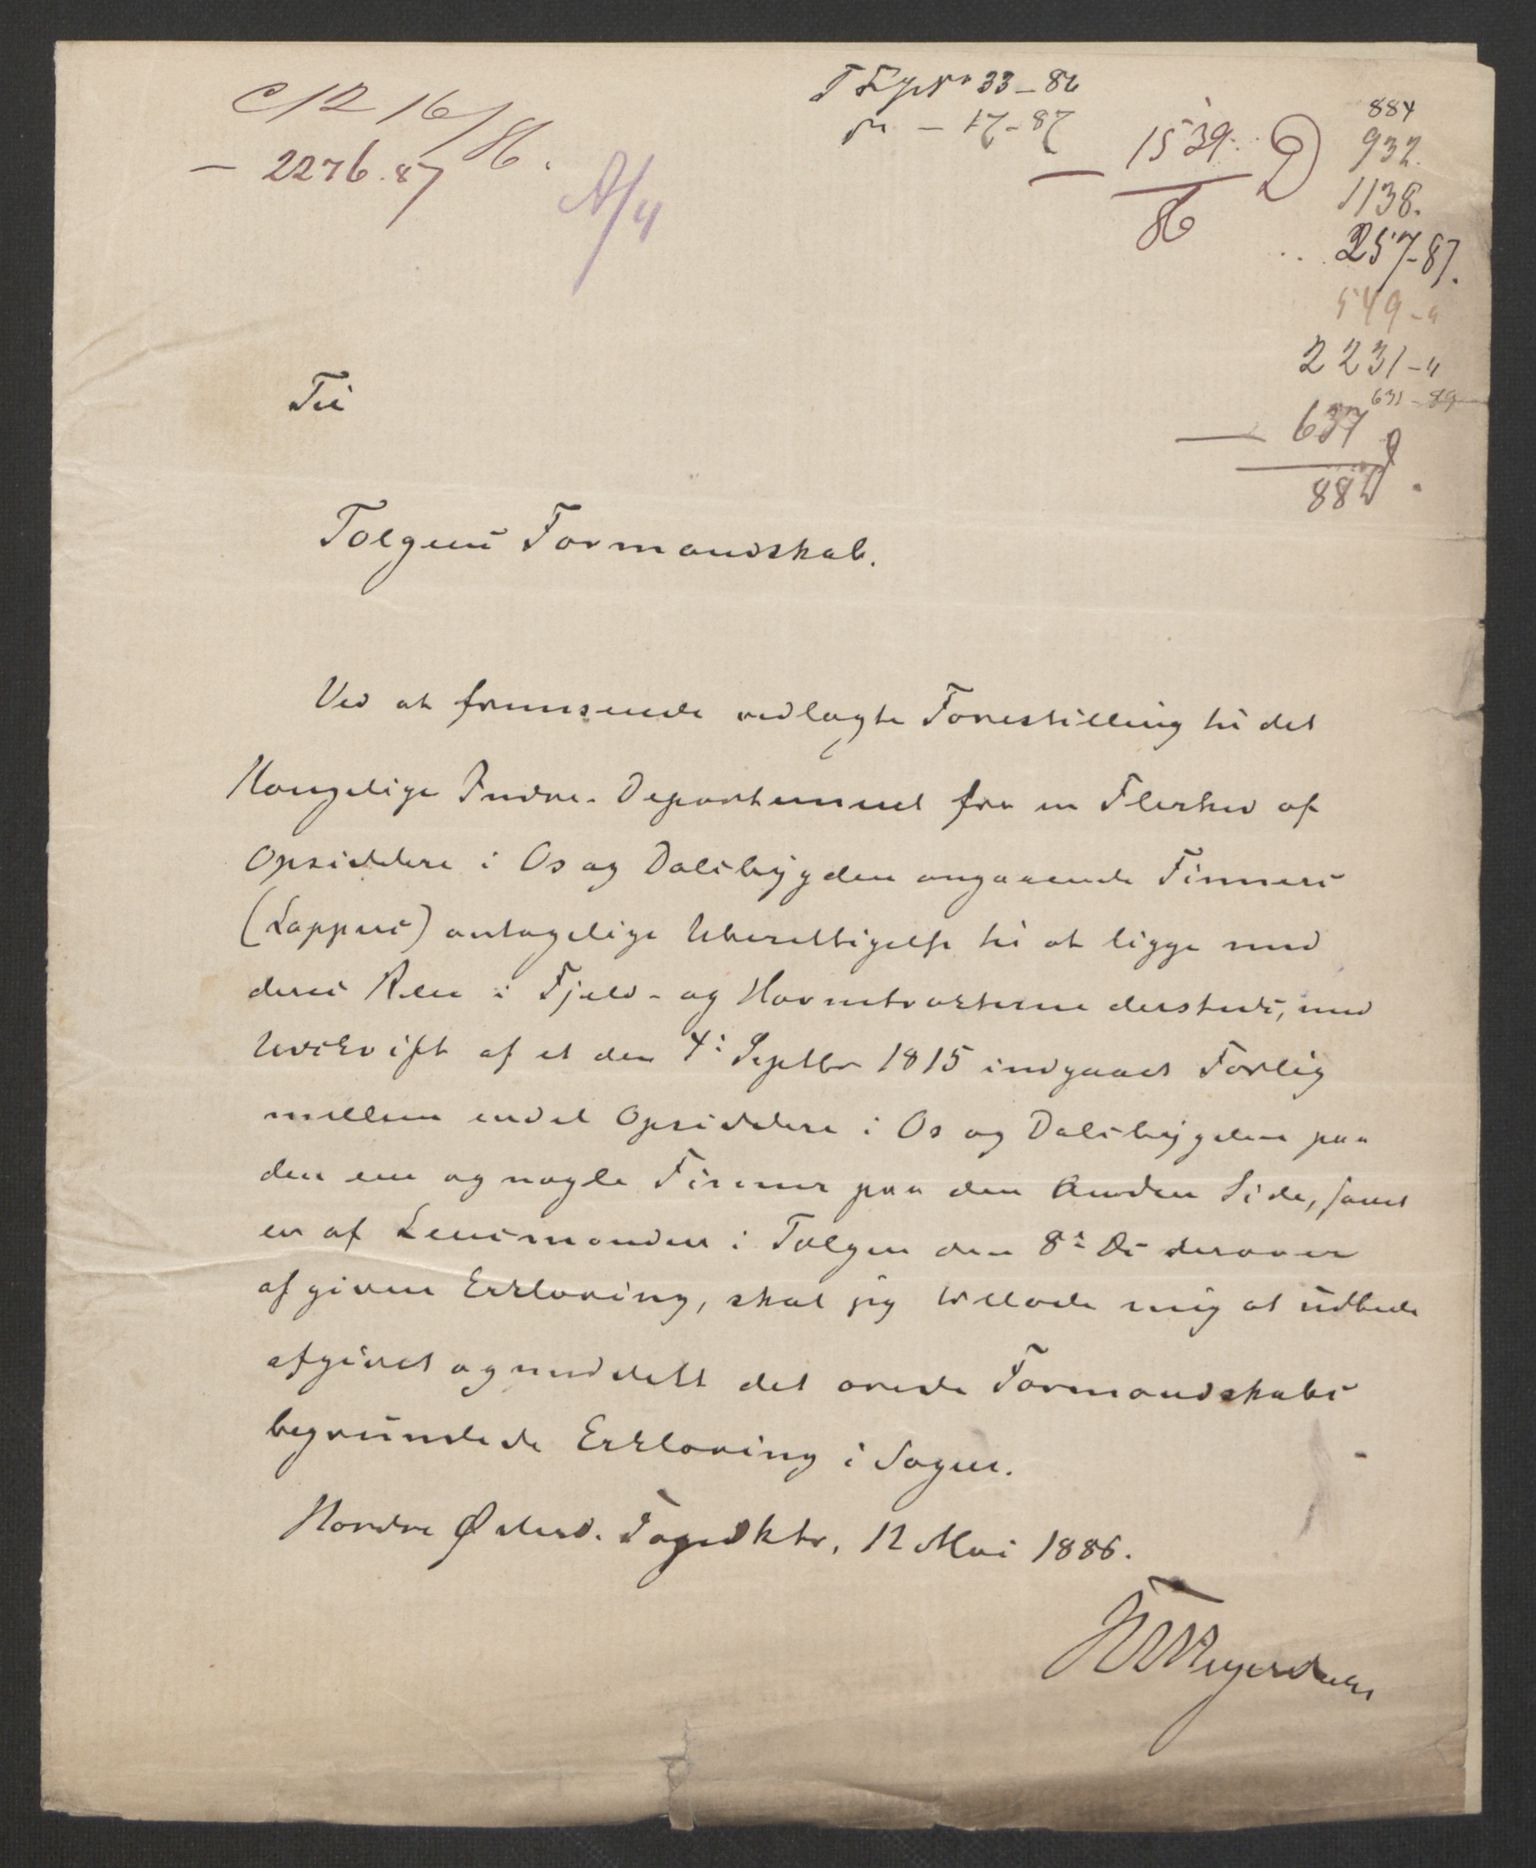 C 12 16/86.
— 2276.87
A/4
T Expr 33-86
— 17-87
— 1539. D
86
884
932.
1138.
257-87.
549-"
2231-"
631-89
— 637 D
88
Til
Tolgens Formandskab.
Ved at fremsende vedlagte Forestilling til det
Kongelige Indre-Departement fra en Flerhed af
Opsiddere i Os og Dalsbygden angaaende Finners
(Lappers) antagelige Uberettigelse til at ligge med
deres Ren i Fjeld- og Havnetrakterne dersteds, med
Udskrift af et den 4: Septbr 1815 indgaaet Forlig
mellem endel Opsiddere i Os og Dalsbygden paa
den ene og nogle Finner paa den Anden Side, samt
en af Lensmanden i Tolgen den 8: Ds derover
afgiven Erklæring, skal jeg tillade mig at udbede
afgivet og meddelt det ærede Formandskabs
begrundede Erklæring i Sagen.
Nordre Østerd. Fogedktr, 12 Mai 1886.